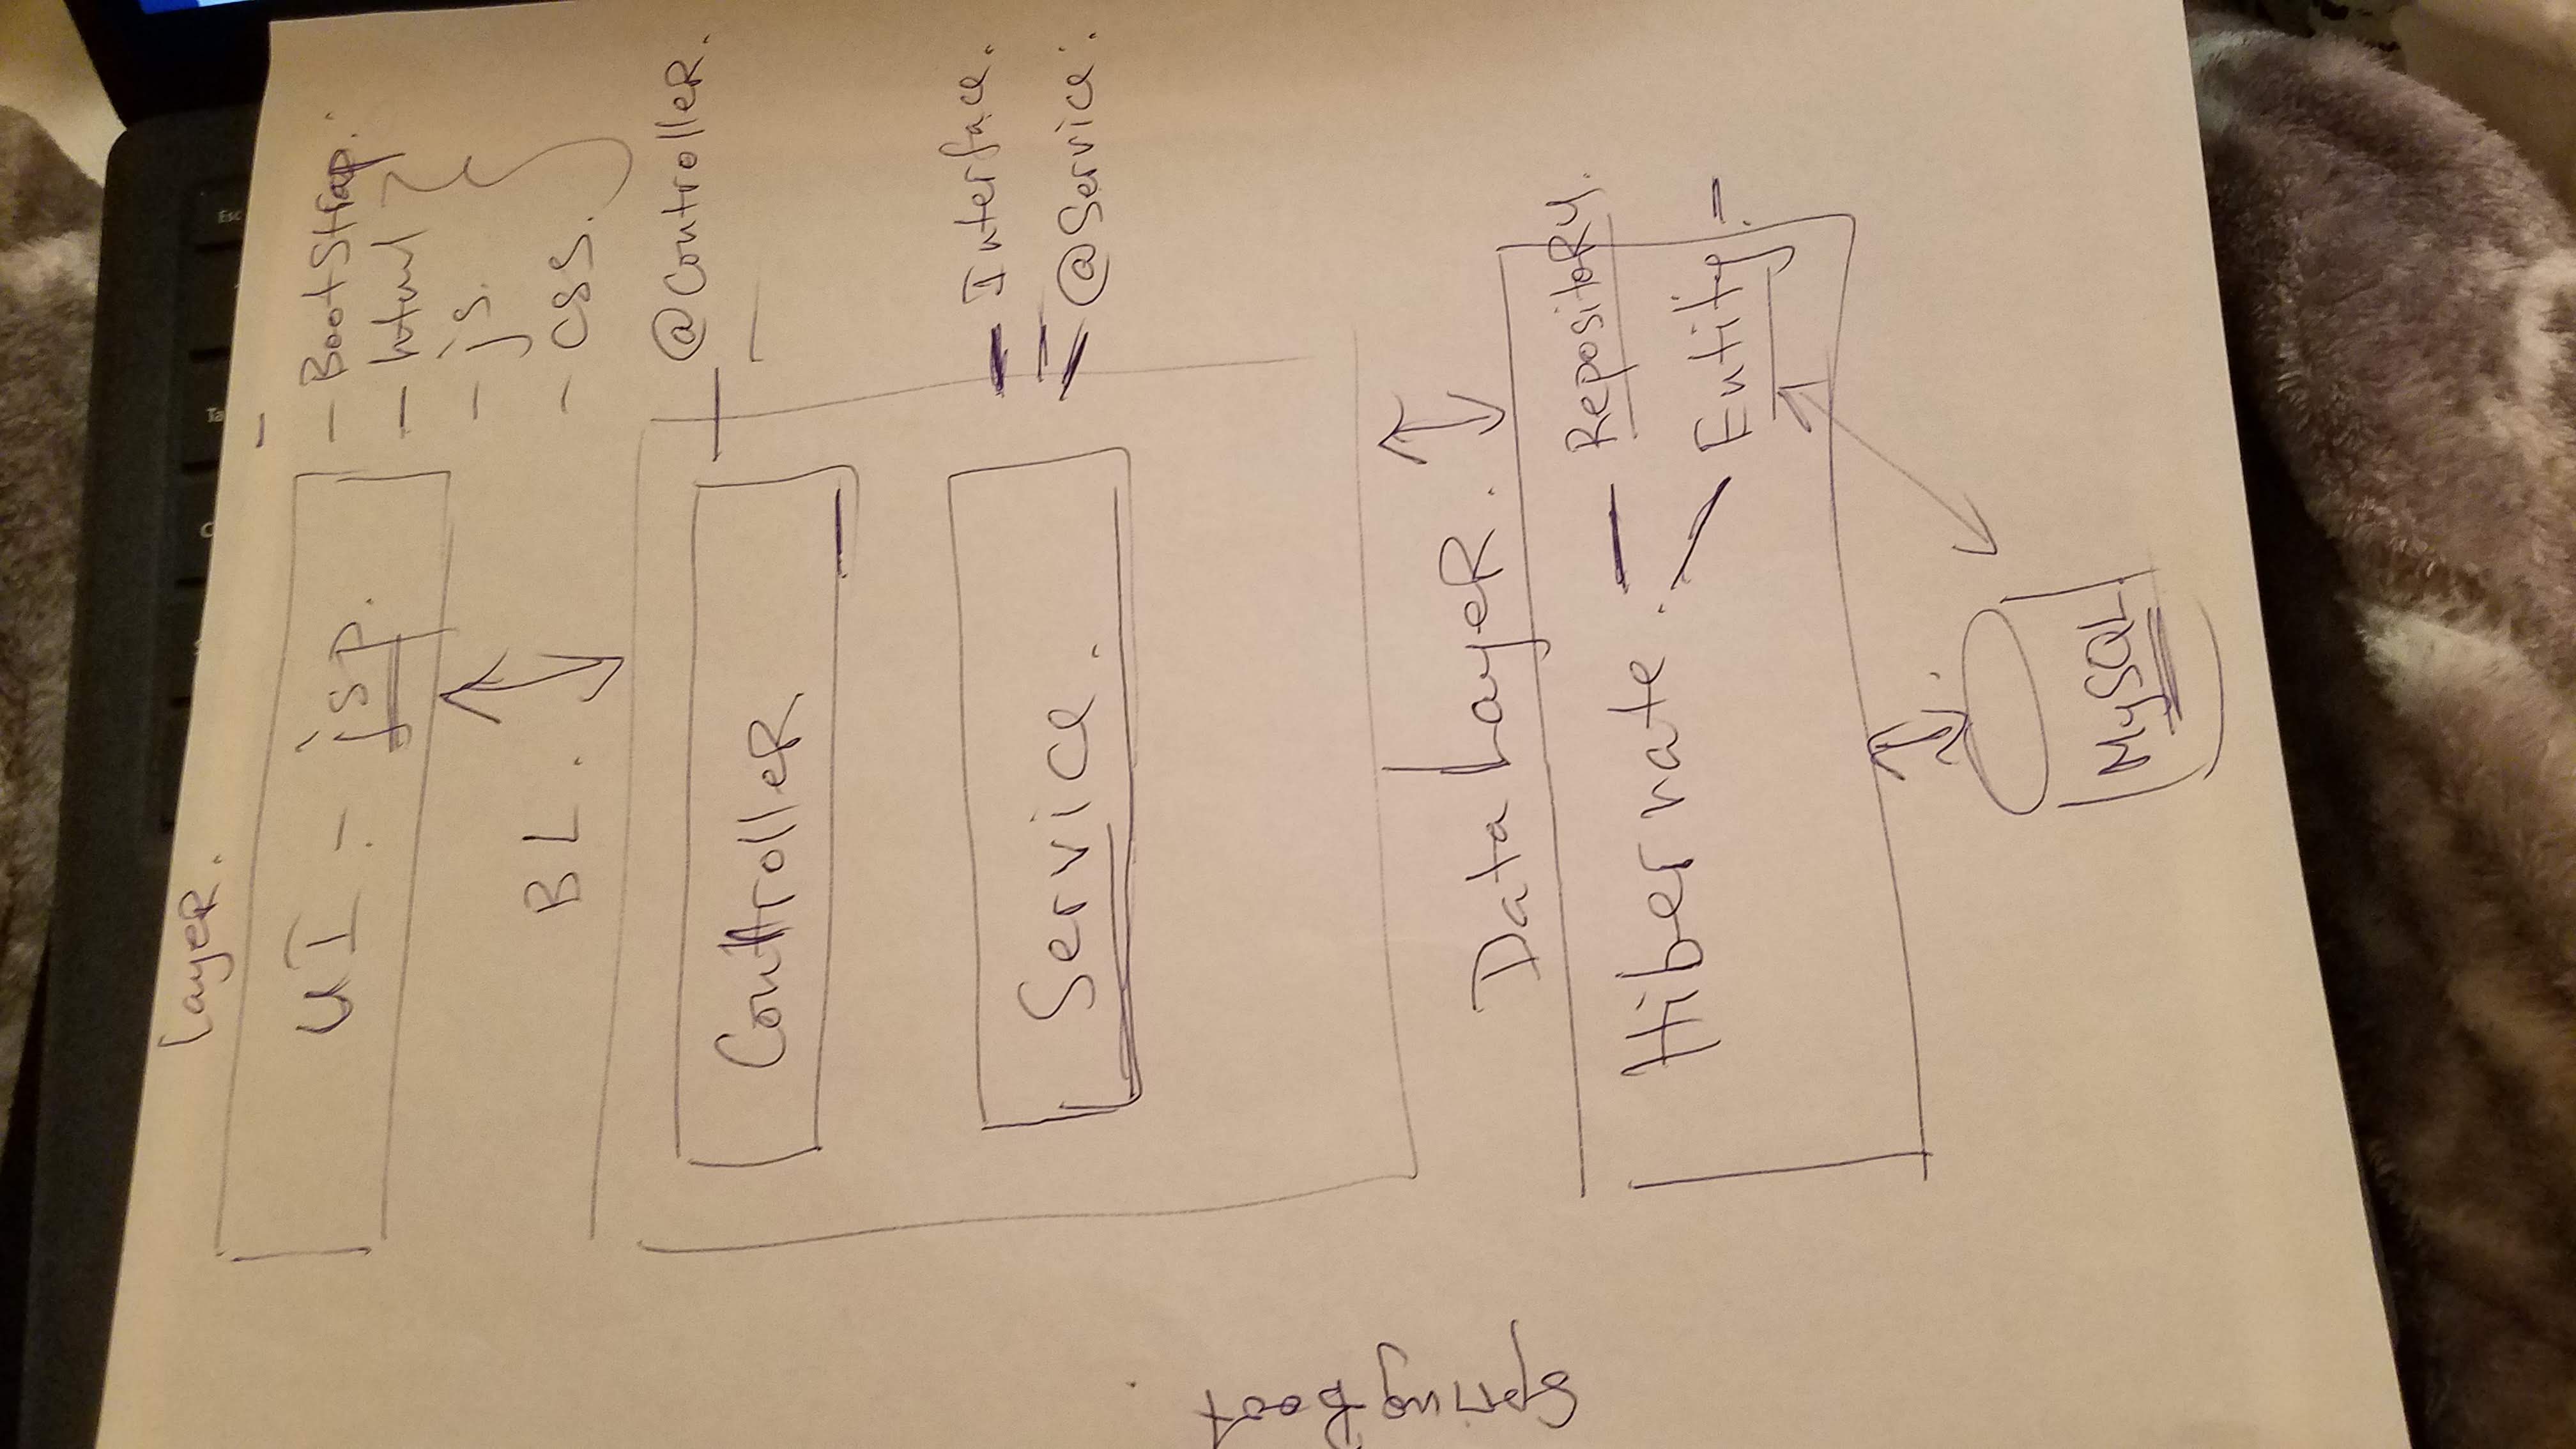 Layer.
UI - jsp.
- BootStrap.
- html
- js.
- css.
BL.
@Controller.
Controller
- Interface.
Service.
@Service.
Spring Boot
Data Layer.
Hibernate.
Repository.
Entity.
MySQL
Ta
Esc